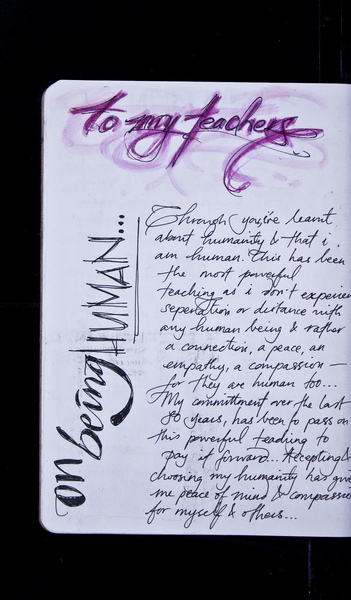 to my teachers
on being HUMAN...
Through you, i've learnt
about humanity & that i
am human. This has been
the most powerful
teaching as i don't experien
seperation or distance with
any human being & rather
a connection, a peace, an
empathy, a compassion —
for they are human too...
My committment over the last
years, has been to pass on
this powerful teaching to
pay it forward... Accepting &
choosing my humanity has give
me peace of mind & compassio
for myself & others...